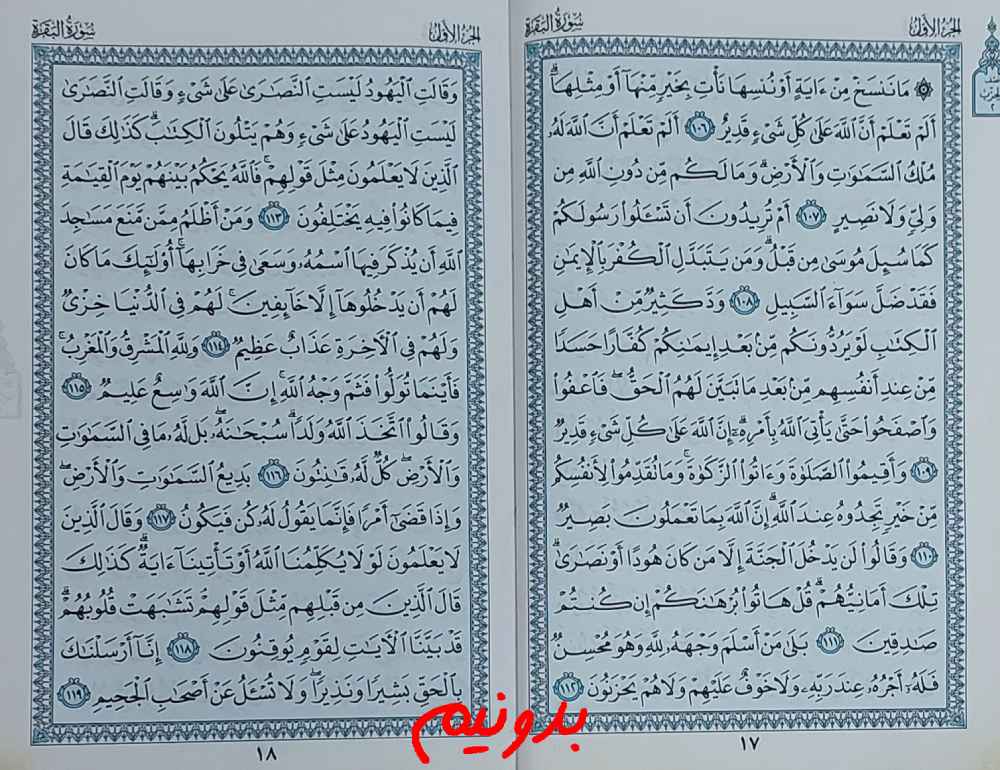 الجزء الأول
سورة البقرة
۞ مَا نَنسَخْ مِنْ ءَايَةٍ أَوْ نُنسِهَا نَأْتِ بِخَيْرٍ مِّنْهَآ أَوْ مِثْلِهَآ ۗ
أَلَمْ تَعْلَمْ أَنَّ ٱللَّهَ عَلَىٰ كُلِّ شَىْءٍ قَدِيرٌ ١٠٦ أَلَمْ تَعْلَمْ أَنَّ ٱللَّهَ لَهُۥ
مُلْكُ ٱلسَّمَٰوَٰتِ وَٱلْأَرْضِ ۗ وَمَا لَكُم مِّن دُونِ ٱللَّهِ مِن
وَلِىٍّ وَلَا نَصِيرٍ ١٠٧ أَمْ تُرِيدُونَ أَن تَسْـَٔلُوا۟ رَسُولَكُمْ
كَمَا سُئِلَ مُوسَىٰ مِن قَبْلُ ۗ وَمَن يَتَبَدَّلِ ٱلْكُفْرَ بِٱلْإِيمَٰنِ
فَقَدْ ضَلَّ سَوَآءَ ٱلسَّبِيلِ ١٠٨ وَدَّ كَثِيرٌ مِّنْ أَهْلِ
ٱلْكِتَٰبِ لَوْ يَرُدُّونَكُم مِّنۢ بَعْدِ إِيمَٰنِكُمْ كُفَّارًا حَسَدًا
مِّنْ عِندِ أَنفُسِهِم مِّنۢ بَعْدِ مَا تَبَيَّنَ لَهُمُ ٱلْحَقُّ ۖ فَٱعْفُوا۟
وَٱصْفَحُوا۟ حَتَّىٰ يَأْتِىَ ٱللَّهُ بِأَمْرِهِۦٓ ۗ إِنَّ ٱللَّهَ عَلَىٰ كُلِّ شَىْءٍ قَدِيرٌ
١٠٩ وَأَقِيمُوا۟ ٱلصَّلَوٰةَ وَءَاتُوا۟ ٱلزَّكَوٰةَ ۚ وَمَا تُقَدِّمُوا۟ لِأَنفُسِكُم
مِّنْ خَيْرٍ تَجِدُوهُ عِندَ ٱللَّهِ ۗ إِنَّ ٱللَّهَ بِمَا تَعْمَلُونَ بَصِيرٌ
١١٠ وَقَالُوا۟ لَن يَدْخُلَ ٱلْجَنَّةَ إِلَّا مَن كَانَ هُودًا أَوْ نَصَٰرَىٰ ۗ
تِلْكَ أَمَانِيُّهُمْ ۗ قُلْ هَاتُوا۟ بُرْهَٰنَكُمْ إِن كُنتُمْ
صَٰدِقِينَ ١١١ بَلَىٰ مَنْ أَسْلَمَ وَجْهَهُۥ لِلَّهِ وَهُوَ مُحْسِنٌ
فَلَهُۥٓ أَجْرُهُۥ عِندَ رَبِّهِۦ وَلَا خَوْفٌ عَلَيْهِمْ وَلَا هُمْ يَحْزَنُونَ ١١٢
١٧
الجزء الأول
سورة البقرة
وَقَالَتِ ٱلْيَهُودُ لَيْسَتِ ٱلنَّصَٰرَىٰ عَلَىٰ شَىْءٍ وَقَالَتِ ٱلنَّصَٰرَىٰ
لَيْسَتِ ٱلْيَهُودُ عَلَىٰ شَىْءٍ وَهُمْ يَتْلُونَ ٱلْكِتَٰبَ ۗ كَذَٰلِكَ قَالَ
ٱلَّذِينَ لَا يَعْلَمُونَ مِثْلَ قَوْلِهِمْ ۚ فَٱللَّهُ يَحْكُمُ بَيْنَهُمْ يَوْمَ ٱلْقِيَٰمَةِ
فِيمَا كَانُوا۟ فِيهِ يَخْتَلِفُونَ ١١٣ وَمَنْ أَظْلَمُ مِمَّن مَّنَعَ مَسَٰجِدَ
ٱللَّهِ أَن يُذْكَرَ فِيهَا ٱسْمُهُۥ وَسَعَىٰ فِى خَرَابِهَآ ۚ أُو۟لَٰٓئِكَ مَا كَانَ
لَهُمْ أَن يَدْخُلُوهَآ إِلَّا خَآئِفِينَ ۚ لَهُمْ فِى ٱلدُّنْيَا خِزْىٌ
وَلَهُمْ فِى ٱلْءَاخِرَةِ عَذَابٌ عَظِيمٌ ١١٤ وَلِلَّهِ ٱلْمَشْرِقُ وَٱلْمَغْرِبُ ۚ
فَأَيْنَمَا تُوَلُّوا۟ فَثَمَّ وَجْهُ ٱللَّهِ ۚ إِنَّ ٱللَّهَ وَٰسِعٌ عَلِيمٌ ١١٥
وَقَالُوا۟ ٱتَّخَذَ ٱللَّهُ وَلَدًا ۗ سُبْحَٰنَهُۥ ۖ بَل لَّهُۥ مَا فِى ٱلسَّمَٰوَٰتِ
وَٱلْأَرْضِ ۖ كُلٌّ لَّهُۥ قَٰنِتُونَ ١١٦ بَدِيعُ ٱلسَّمَٰوَٰتِ وَٱلْأَرْضِ ۖ
وَإِذَا قَضَىٰٓ أَمْرًا فَإِنَّمَا يَقُولُ لَهُۥ كُن فَيَكُونُ ١١٧ وَقَالَ ٱلَّذِينَ
لَا يَعْلَمُونَ لَوْلَا يُكَلِّمُنَا ٱللَّهُ أَوْ تَأْتِينَآ ءَايَةٌ ۗ كَذَٰلِكَ
قَالَ ٱلَّذِينَ مِن قَبْلِهِم مِّثْلَ قَوْلِهِمْ ۘ تَشَٰبَهَتْ قُلُوبُهُمْ ۗ
قَدْ بَيَّنَّا ٱلْءَايَٰتِ لِقَوْمٍ يُوقِنُونَ ١١٨ إِنَّآ أَرْسَلْنَٰكَ
بِٱلْحَقِّ بَشِيرًا وَنَذِيرًا ۖ وَلَا تُسْـَٔلُ عَنْ أَصْحَٰبِ ٱلْجَحِيمِ ١١٩
١٨
بدونیم